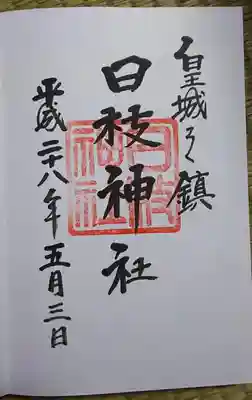 皇城之鎮
日枝神社
日枝神社
平成二十八年五月三日